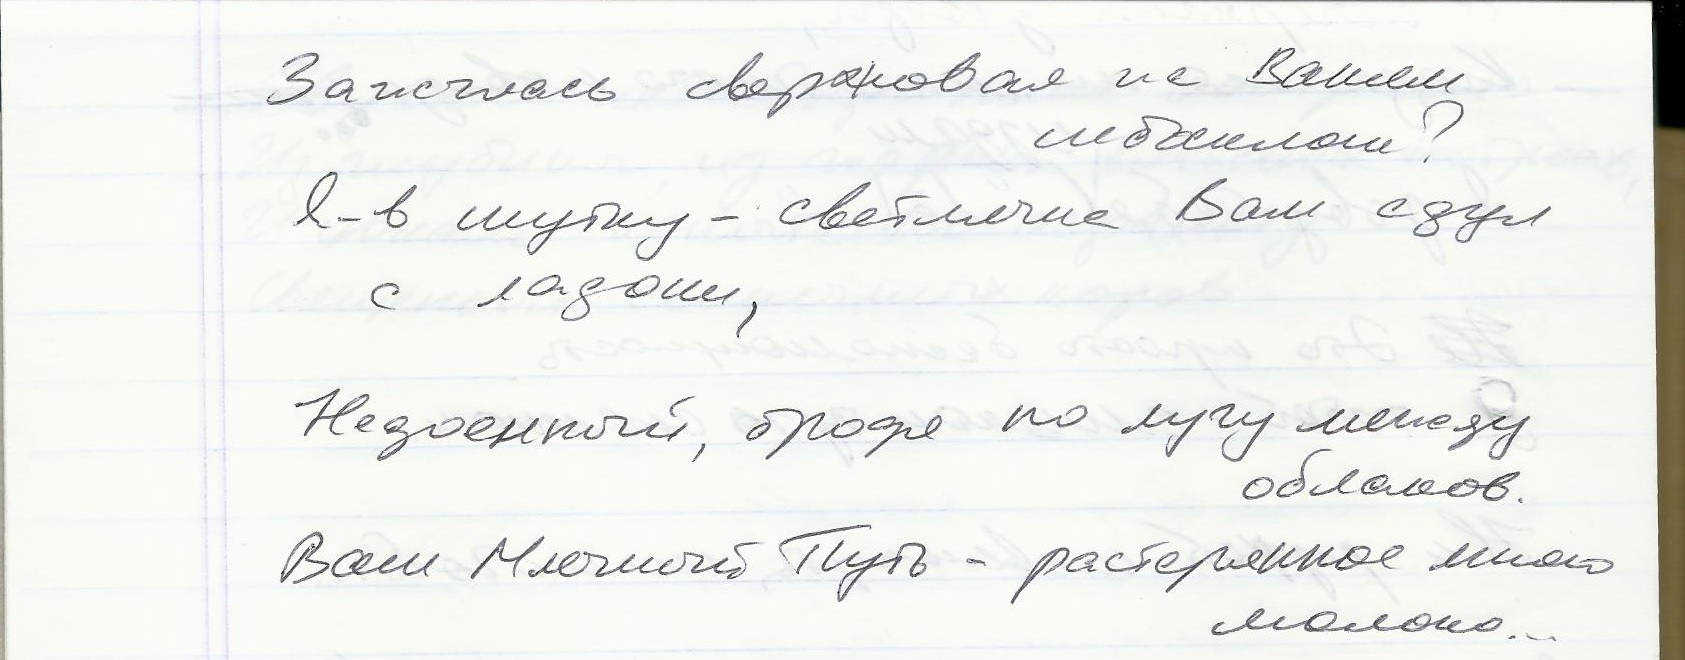 Зажглась сверхновая на Вашем
небосклоне?
Я - в шутку - светлячка Вам сдул
с ладони,
Недоенный, бродя по лугу между
облаков.
Ваш Млечный Путь - растерянное мною
молоко...